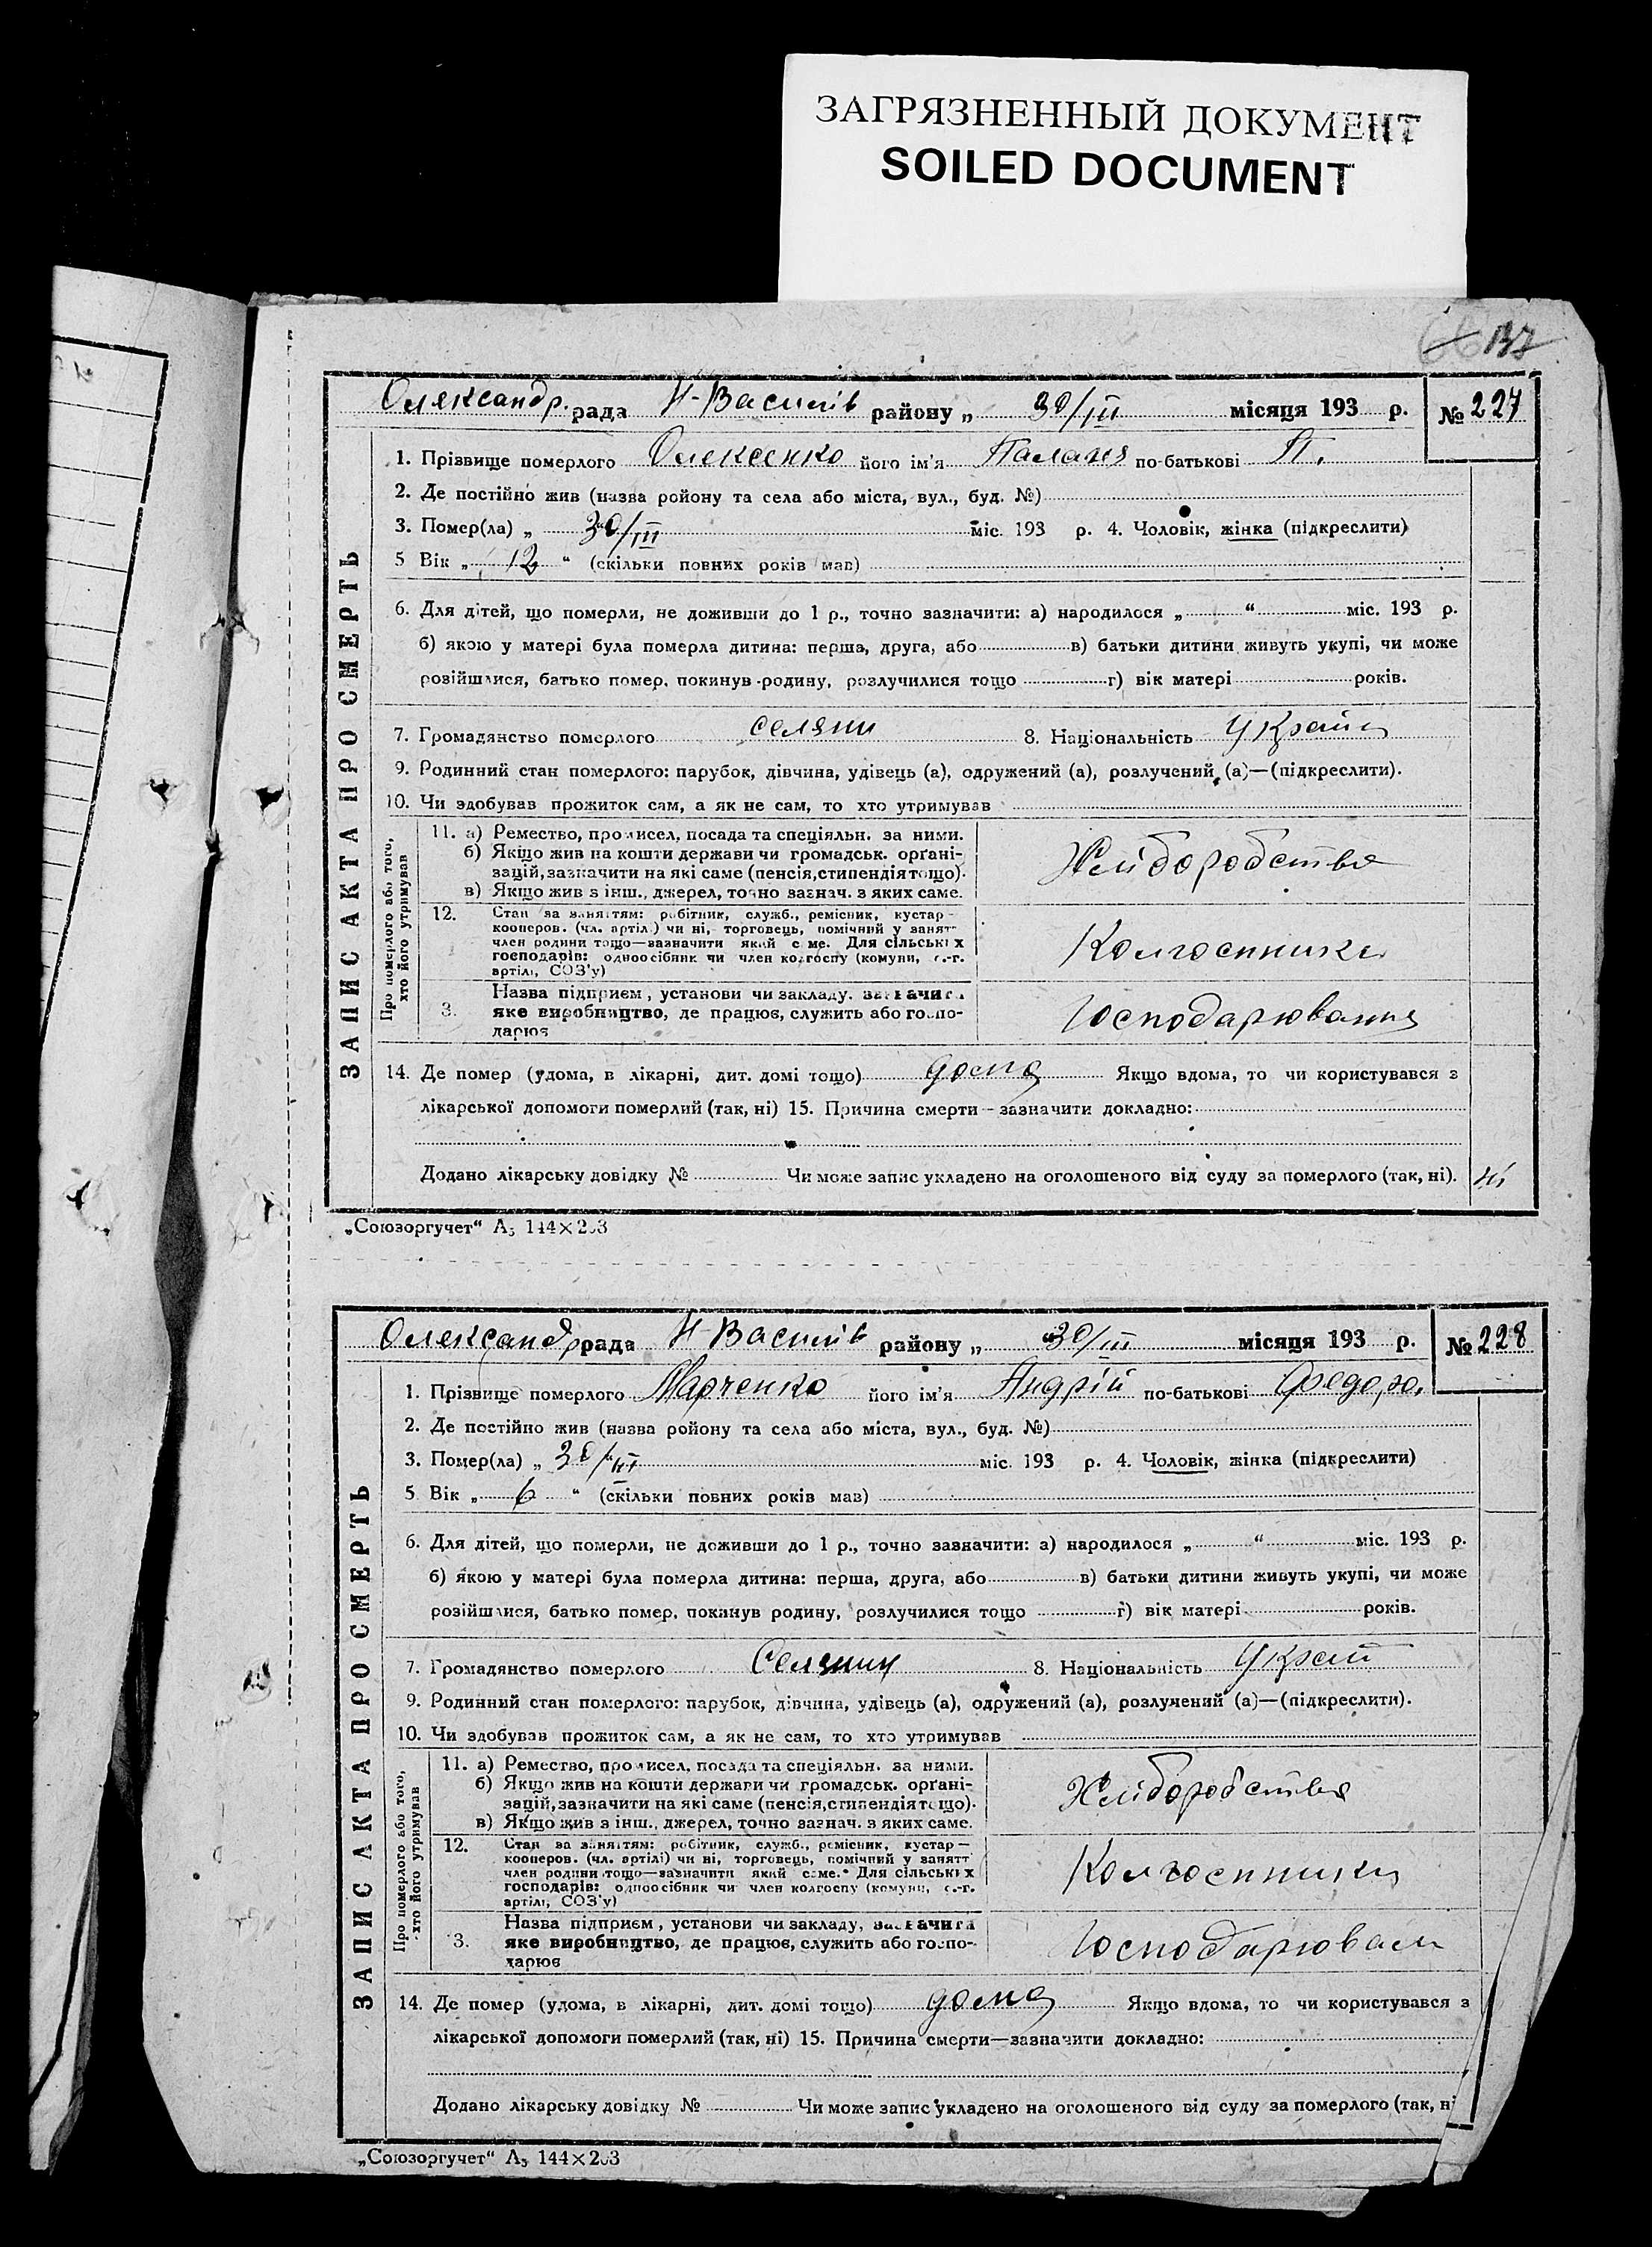 ЗАГРЯЗНЕННЫЙ ДОКУМЕНТ
SOILED DOCUMENT
137
Олександр. рада Н-Василів району „ 30/III місяця 193 р. № 227
1. Прізвище померлого Олексенко його ім'я Палаия по-батькові П.
2. Де постійно жив (назва ройону та села або міста, вул., буд. №)
3. Помер(ла) „ 30/III міс. 193 р. 4. Чоловік, жінка (підкреслити)
5 Вік „ 12 “ (скільки повних років мав)
6. Для дітей, що померли, не доживши до 1 р., точно зазначити: а) народилося „ “ міс. 193 р.
б) якою у матері була померла дитина: перша, друга, або в) батьки дитини живуть укупі, чи може
розійшлися, батько помер, покинув родину, розлучилися тощо г) вік матері років.
7. Громадянство померлого селяни 8. Національність Україн
9. Родинний стан померлого: парубок, дівчина, удівець (а), одружений (а), розлучений (а)—(підкреслити).
10. Чи здобував прожиток сам, а як не сам, то хто утримував
ЗАПИС АКТА ПРО СМЕРТЬ
Про померлого або того, хто його утримував
11. а) Ремество, промисел, посада та спеціяльн. за ними.
б) Якщо жив на кошти держави чи громадськ. орґані-
зацій, зазначити на які саме (пенсія, стипендія тощо).
в) Якщо жив з інш., джерел, точно зазнач. з яких саме.
Хліборобства
12. Стан за заняттям: робітник, служб., ремісник, кустар—
кооперов. (чл. артілі) чи ні, торговець, помічний у занят
член родини тощо—зазначити який саме. Для сільських
господарів: одноосібник чи член колгоспу (комуни, с.-г.
артілі, СОЗ'у)
Колгоспники
3. Назва підприєм, установи чи закладу, зазначити
яке виробництво, де працює, служить або госпо-
дарює
Господарювання
14. Де помер (удома, в лікарні, дит. домі тощо) дома Якщо вдома, то чи користувався з
лікарської допомоги померлий (так, ні) 15. Причина смерти—зазначити докладно:
Додано лікарську довідку № Чи може запис укладено на оголошеного від суду за померлого (так, ні). ні
„Союзоргучет“ А5 144×203
Олександр рада Н-Василів району „ 30/III місяця 193 р. № 228
1. Прізвище померлого Марченко його ім'я Андрій по-батькові Федоро.
2. Де постійно жив (назва ройону та села або міста, вул., буд. №)
3. Помер(ла) „ 30/III міс. 193 р. 4. Чоловік, жінка (підкреслити)
5 Вік „ 6 “ (скільки повних років мав)
6. Для дітей, що померли, не доживши до 1 р., точно зазначити: а) народилося „ “ міс. 193 р.
б) якою у матері була померла дитина: перша, друга, або в) батьки дитини живуть укупі, чи може
розійшлися, батько помер, покинув родину, розлучилися тощо г) вік матері років.
7. Громадянство померлого Селянин 8. Національність Україн
9. Родинний стан померлого: парубок, дівчина, удівець (а), одружений (а), розлучений (а)—(підкреслити).
10. Чи здобував прожиток сам, а як не сам, то хто утримував
ЗАПИС АКТА ПРО СМЕРТЬ
Про померлого або того, хто його утримував
11. а) Ремество, промисел, посада та спеціяльн. за ними.
б) Якщо жив на кошти держави чи громадськ. орґані-
зацій, зазначити на які саме (пенсія, стипендія тощо).
в) Якщо жив з інш., джерел, точно зазнач. з яких саме.
Хліборобства
12. Стан за заняттям: робітник, служб., ремісник, кустар—
кооперов. (чл. артілі) чи ні, торговець, помічний у занятт
член родини тощо—зазначити який саме. Для сільських
господарів: одноосібник чи член колгоспу (комуни, с.-г.
артілі, СОЗ'у)
Колгоспники
3. Назва підприєм, установи чи закладу, зазначити
яке виробництво, де працює, служить або госпо-
дарює
Господарюван
14. Де помер (удома, в лікарні, дит. домі тощо) дома Якщо вдома, то чи користувався з
лікарської допомоги померлий (так, ні) 15. Причина смерти—зазначити докладно:
Додано лікарську довідку № Чи може запис укладено на оголошеного від суду за померлого (так, ні
„Союзоргучет“ А5 144×203